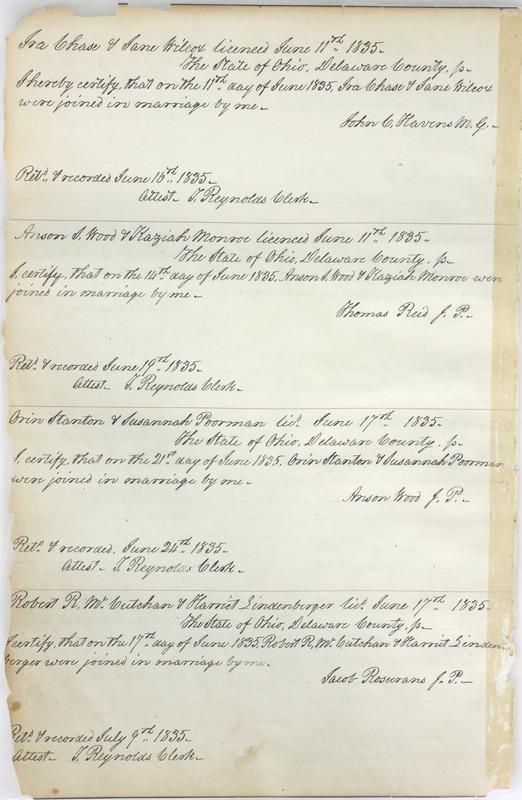 Ira Chase & Jane Wilcox licenced June 11th 1835.
The State of Ohio, Delaware County, ss.
I hereby certify, that on the 11th day of June 1835, Ira Chase & Jane Wilcox
were joined in marriage by me.
John C. Havens M. G.
Retd. & recorded June 16th 1835.
Attest. T. Reynolds Clerk.
Anson S. Wood & Kaziah Monroe licenced June 11th 1835.
The State of Ohio, Delaware County, ss.
I, certify, that on the 14th day of June 1835. Anson S. Wood & Kaziah Monroe were
joined in marriage by me.
Thomas Reid J. P.
Retd. & recorded June 19th 1835.
Attest. T. Reynolds Clerk.
Orin Stanton & Susannah Poorman licd. June 17th 1835.
The State of Ohio, Delaware County, ss.
I, certify, that on the 21st day of June 1835. Orin Stanton & Susannah Poorman
were joined in marriage by me.
Anson Wood J. P.
Retd. & recorded. June 24th 1835.
Attest. T. Reynolds Clerk.
Robert R. McCutchan & Harriet Lindenberger licd. June 17th 1835.
The State of Ohio, Delaware County, ss.
I certify, that on the 17th day of June 1835 Robert R. McCutchan & Harriet Linden-
berger were joined in marriage by me.
Jacob Rosecrans J. P.
Retd. & recorded July 9th 1835.
Attest. T. Reynolds Clerk.